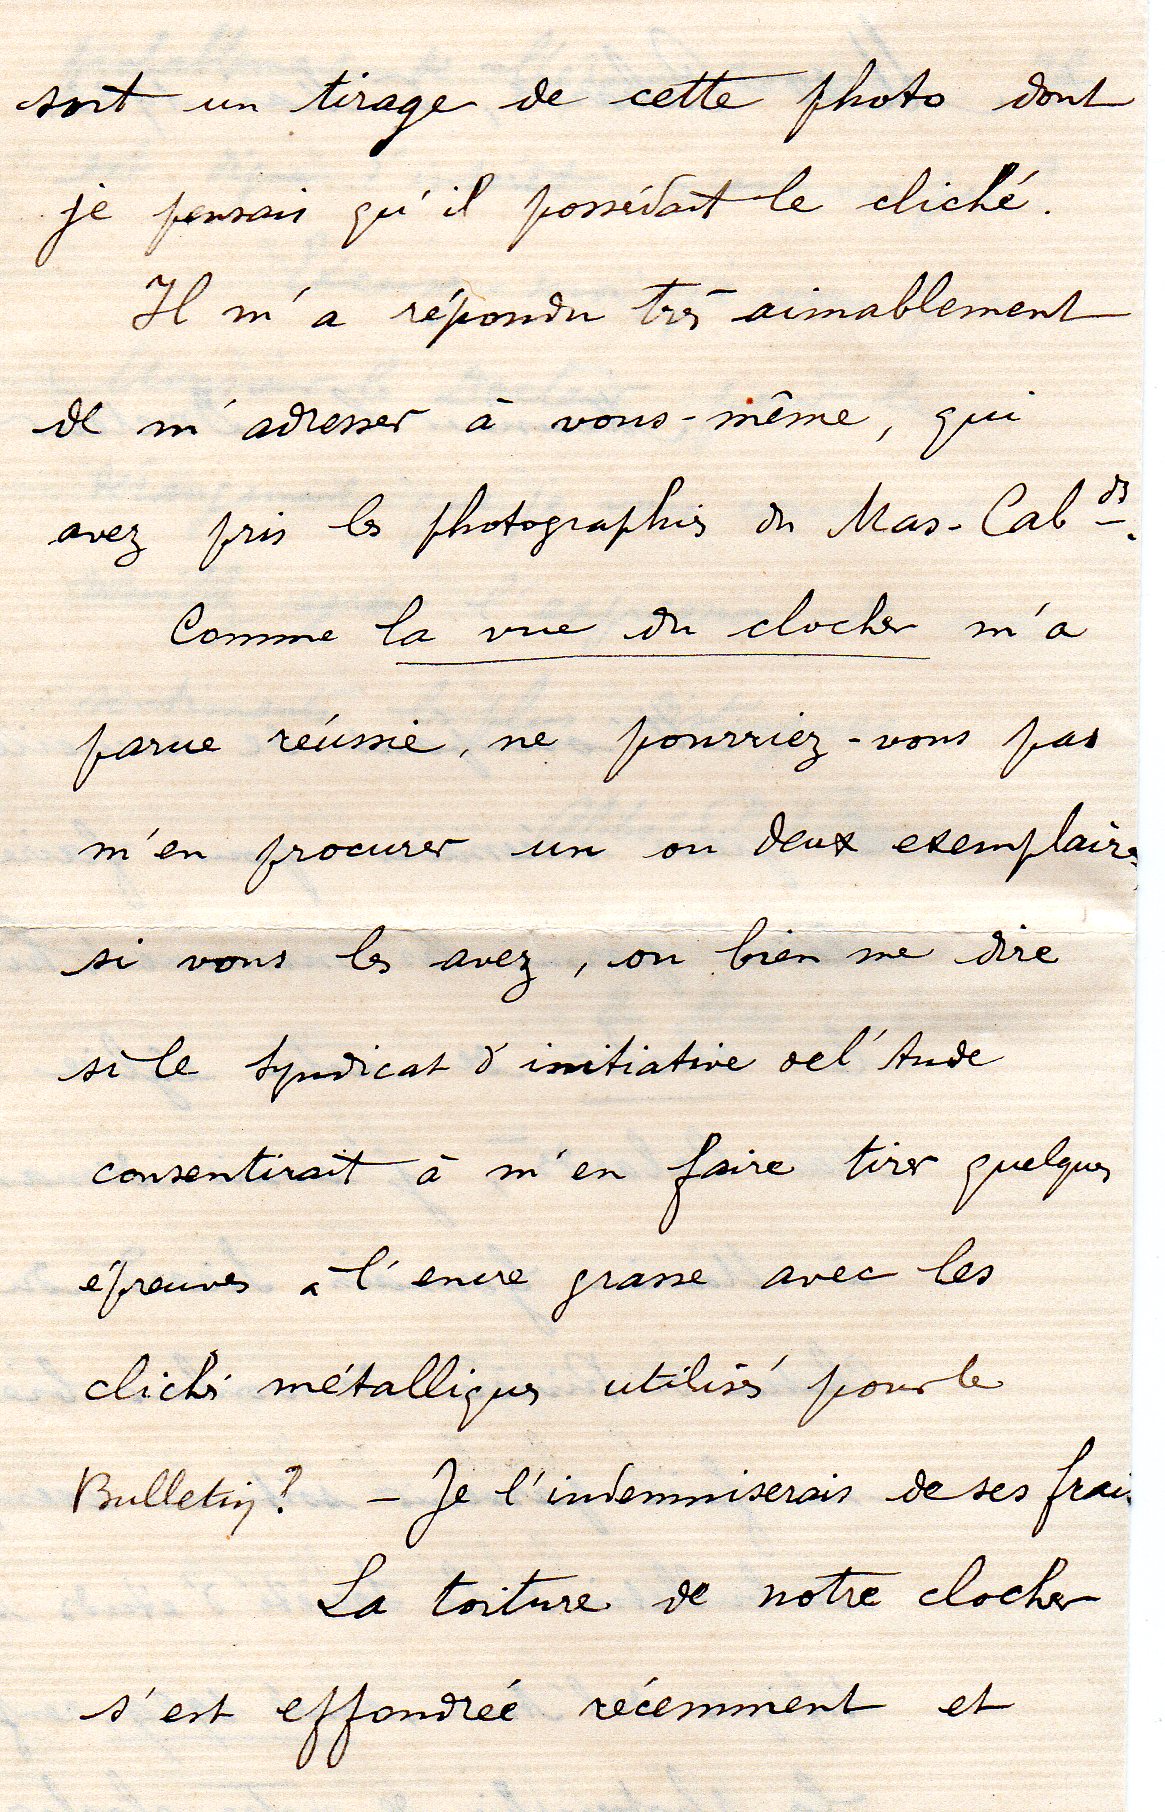 soit un tirage de cette photo dont
je pensais qu'il possédait le cliché.
Il m'a répondu très aimablement
de m'adresser à vous-même, qui
avez pris les photographies du Mas-Cab<sup>ds</sup>.
Comme la vue du clocher m'a
parue réussie, ne pourriez-vous pas
m'en procurer un ou deux exemplaires,
si vous les avez, ou bien me dire
si le Syndicat d'initiative de l'Aude
consentirait à m'en faire tirer quelques
épreuves à l'encre grasse avec les
clichés métalliques utilisés pour le
Bulletin? – Je l'indemniserais de ses frais.
La toiture de notre clocher
s'est effondrée récemment et